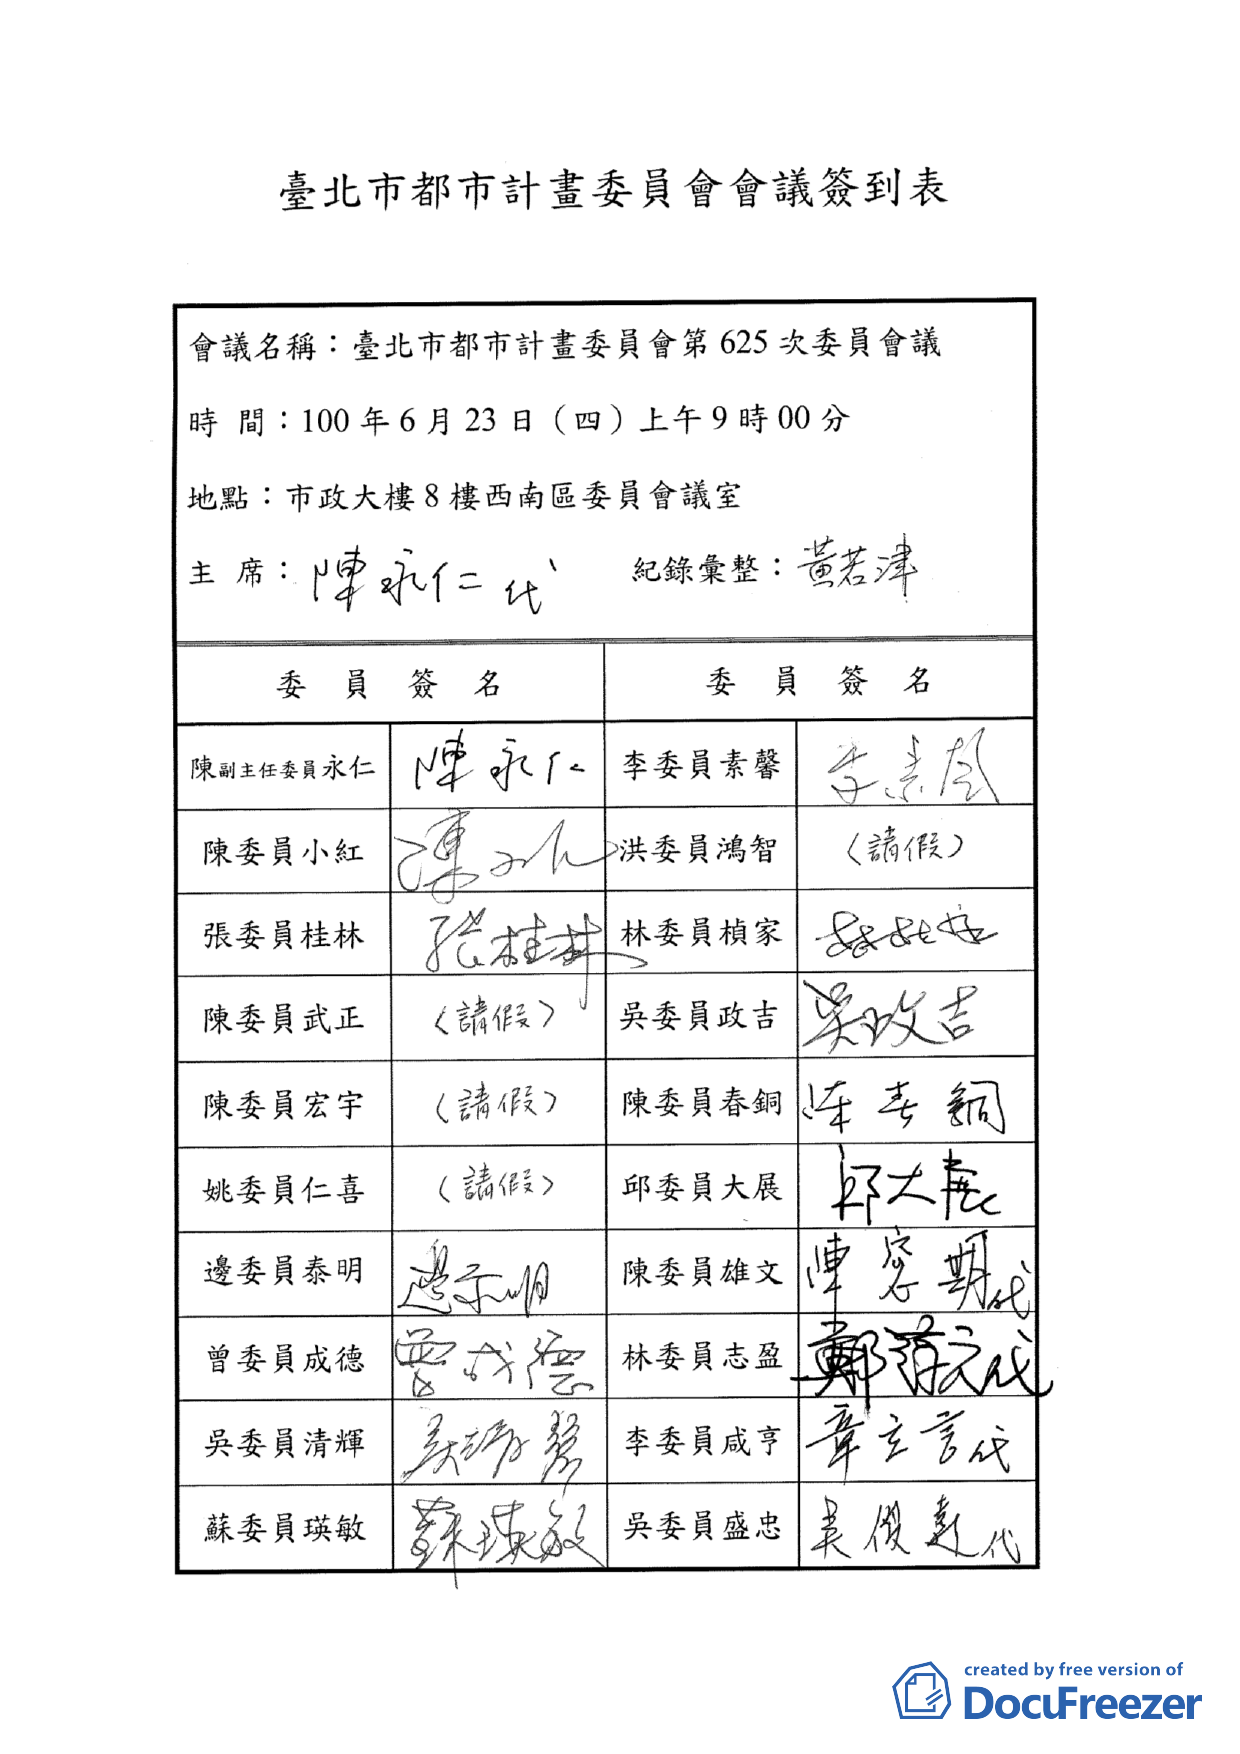 臺北市都市計畫委員會會議簽到表
會議名稱：臺北市都市計畫委員會第 625 次委員會議
時 間：100 年 6 月 23 日（四）上午 9 時 00 分
地點：市政大樓 8 樓西南區委員會議室
主 席：陳永仁代 紀錄彙整：黃若津
委 員 簽 名 委 員 簽 名
陳副主任委員永仁 陳永仁 李委員素馨 李素馨
陳委員小紅 陳小紅 洪委員鴻智 （請假）
張委員桂林 張桂林 林委員楨家
陳委員武正 （請假） 吳委員政吉 吳政吉
陳委員宏宇 （請假） 陳委員春銅 陳春銅
姚委員仁喜 （請假） 邱委員大展 邱大展
邊委員泰明 邊泰明 陳委員雄文 陳容期代
曾委員成德 曾成德 林委員志盈 鄭 代
吳委員清輝 吳清輝 李委員咸亨 章立言代
蘇委員瑛敏 蘇瑛敏 吳委員盛忠 代
created by free version of
DocuFreezer